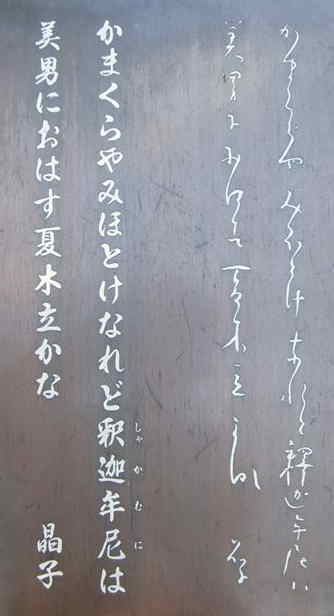 かまくらや みほとけ なれと 釋迦牟尼ハ
美男に おはす 夏木立かな 晶子
しゃかむに
かまくらやみほとけなれど釈迦牟尼は
美男におはす夏木立かな 晶子